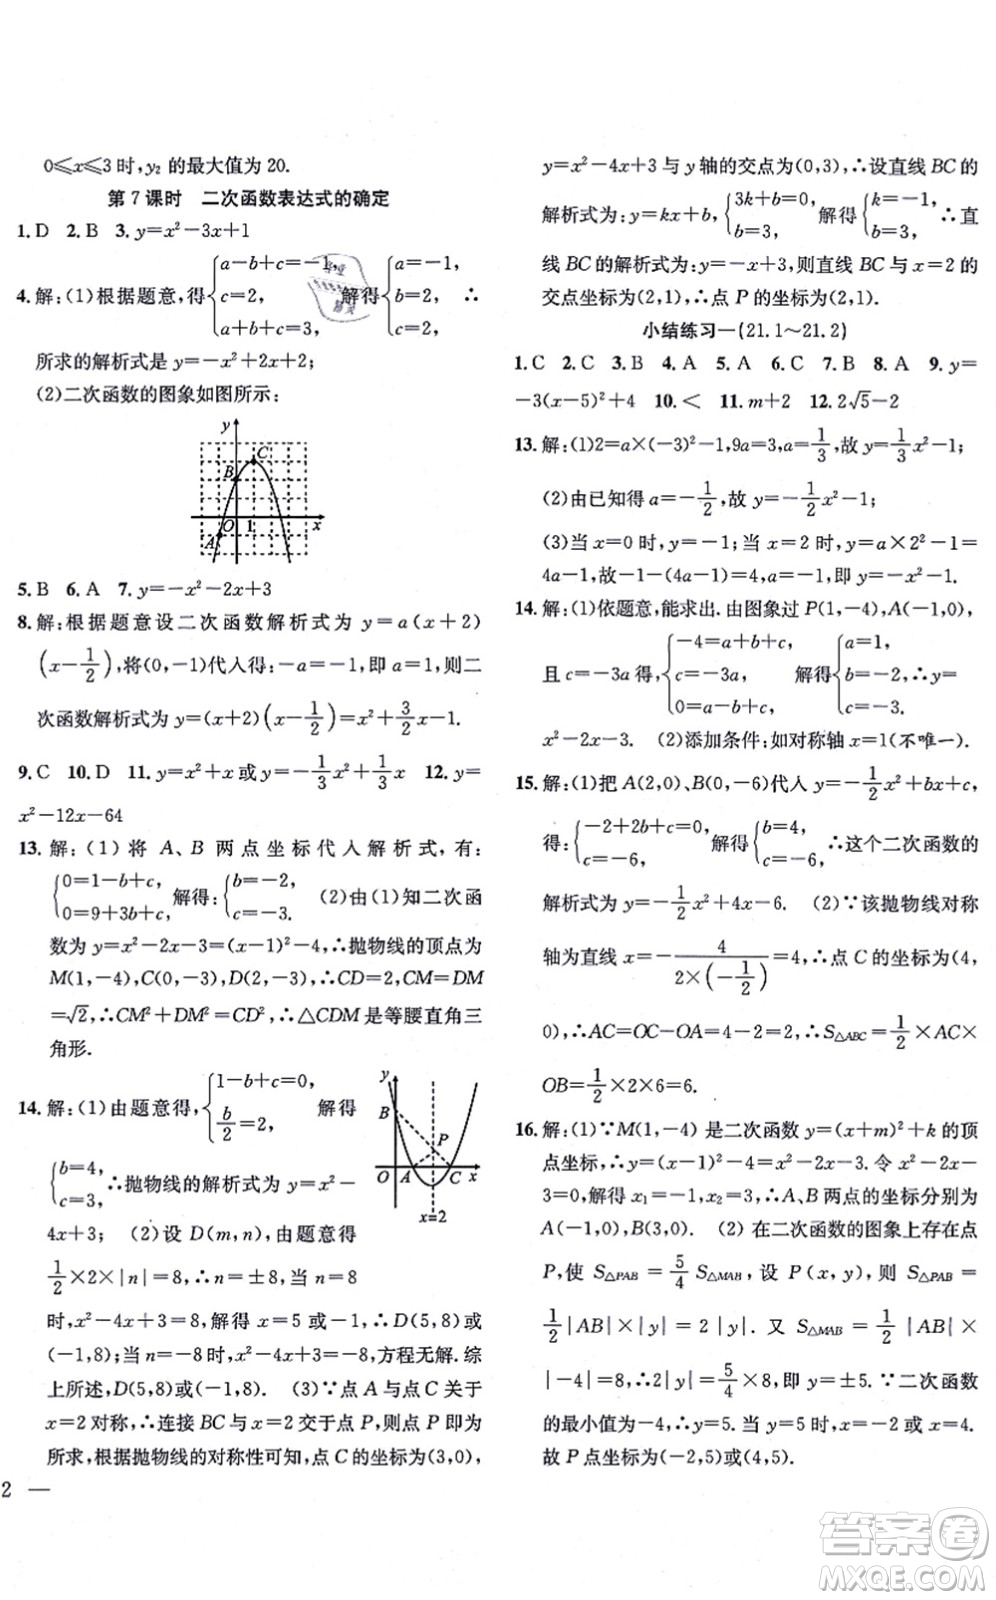 0≤x≤3时,y₂的最大值为20.
第7课时　二次函数表达式的确定
1. D 2. B 3. y=x²-3x+1
4. 解:(1)根据题意,得{a-b+c=-1, c=2, a+b+c=3, 解得{a=-1, b=2, c=2, ∴
所求的解析式是y=-x²+2x+2;
(2)二次函数的图象如图所示:
y
C
B
O 1 x
A
5. B 6. A 7. y=-x²-2x+3
8. 解:根据题意设二次函数解析式为y=a(x+2)
(x-1/2),将(0,-1)代入得:-a=-1,即a=1,则二
次函数解析式为y=(x+2)(x-1/2)=x²+3/2x-1.
9. C 10. D 11. y=x²+x或y=-1/3x²+1/3x 12. y=
x²-12x-64
13. 解:(1)将A、B两点坐标代入解析式,有:
{0=1-b+c, 0=9+3b+c, 解得:{b=-2, c=-3. (2)由(1)知二次函
数为y=x²-2x-3=(x-1)²-4,∴抛物线的顶点为
M(1,-4),C(0,-3),D(2,-3),∴CD=2,CM=DM
=√2,∴CM²+DM²=CD²,∴△CDM是等腰直角三
角形.
14. 解:(1)由题意得,{1-b+c=0, b/2=2, 解得
{b=4, c=3, ∴抛物线的解析式为y=x²-
4x+3; (2)设D(m,n),由题意得
1/2×2×|n|=8,∴n=±8,当n=8
y
B
P
O A C x
x=2
时,x²-4x+3=8,解得x=5或-1,∴D(5,8)或
(-1,8);当n=-8时,x²-4x+3=-8,方程无解.综
上所述,D(5,8)或(-1,8). (3)∵点A与点C关于
x=2对称,∴连接BC与x=2交于点P,则点P即为
所求,根据抛物线的对称性可知,点C的坐标为(3,0),
2 —
y=x²-4x+3与y轴的交点为(0,3),∴设直线BC的
解析式为:y=kx+b,{3k+b=0, b=3, 解得{k=-1, b=3. ∴直
线BC的解析式为:y=-x+3,则直线BC与x=2的
交点坐标为(2,1),∴点P的坐标为(2,1).
小结练习一(21.1～21.2)
1. C 2. C 3. B 4. A 5. A 6. C 7. B 8. A 9. y=
-3(x-5)²+4 10. < 11. m+2 12. 2√5-2
13. 解:(1)2=a×(-3)²-1,9a=3,a=1/3,故y=1/3x²-1;
(2)由已知得a=-1/2,故y=-1/2x²-1;
(3)当x=0时,y=-1;当x=2时,y=a×2²-1=
4a-1.依题意,得4a-1>-1,即a>0.
14. 解:(1)依题意,能求出.由图象过P(1,-4),A(-1,0),
且c=-3a得,{-4=a+b+c, c=-3a, 0=a-b+c, 解得{a=1, b=-2, c=-3. ∴y=
x²-2x-3. (2)添加条件:如对称轴x=1(不唯一).
15. 解:(1)把A(2,0)、B(0,-6)代入y=-1/2x²+bx+c,
得:{-2+2b+c=0, c=-6, 解得{b=4, c=-6. ∴这个二次函数的
解析式为y=-1/2x²+4x-6. (2)∵该抛物线对称
轴为直线x=-4/(2×(-1/2))=4,∴点C的坐标为(4,
0),∴AC=OC-OA=4-2=2,∴S△ABC=1/2×AC×
OB=1/2×2×6=6.
16. 解:(1)∵M(1,-4)是二次函数y=(x+m)²+k的顶
点坐标,∴y=(x-1)²-4=x²-2x-3.令x²-2x-3
=0,解得x₁=-1,x₂=3,∴A、B两点的坐标分别为
A(-1,0),B(3,0). (2)在二次函数的图象上存在点
P,使S△PAB=5/4S△MAB,设P(x,y),则S△PAB=
1/2|AB|×|y|=2|y|.又S△MAB=1/2|AB|×
|-4|=8,∴2|y|=5/4×8,即y=±5.∵二次函数
的最小值为-4,∴y=5.当y=5时,x=-2或x=4.
故P点坐标为(-2,5)或(4,5).
答案卷
MXQE.COM